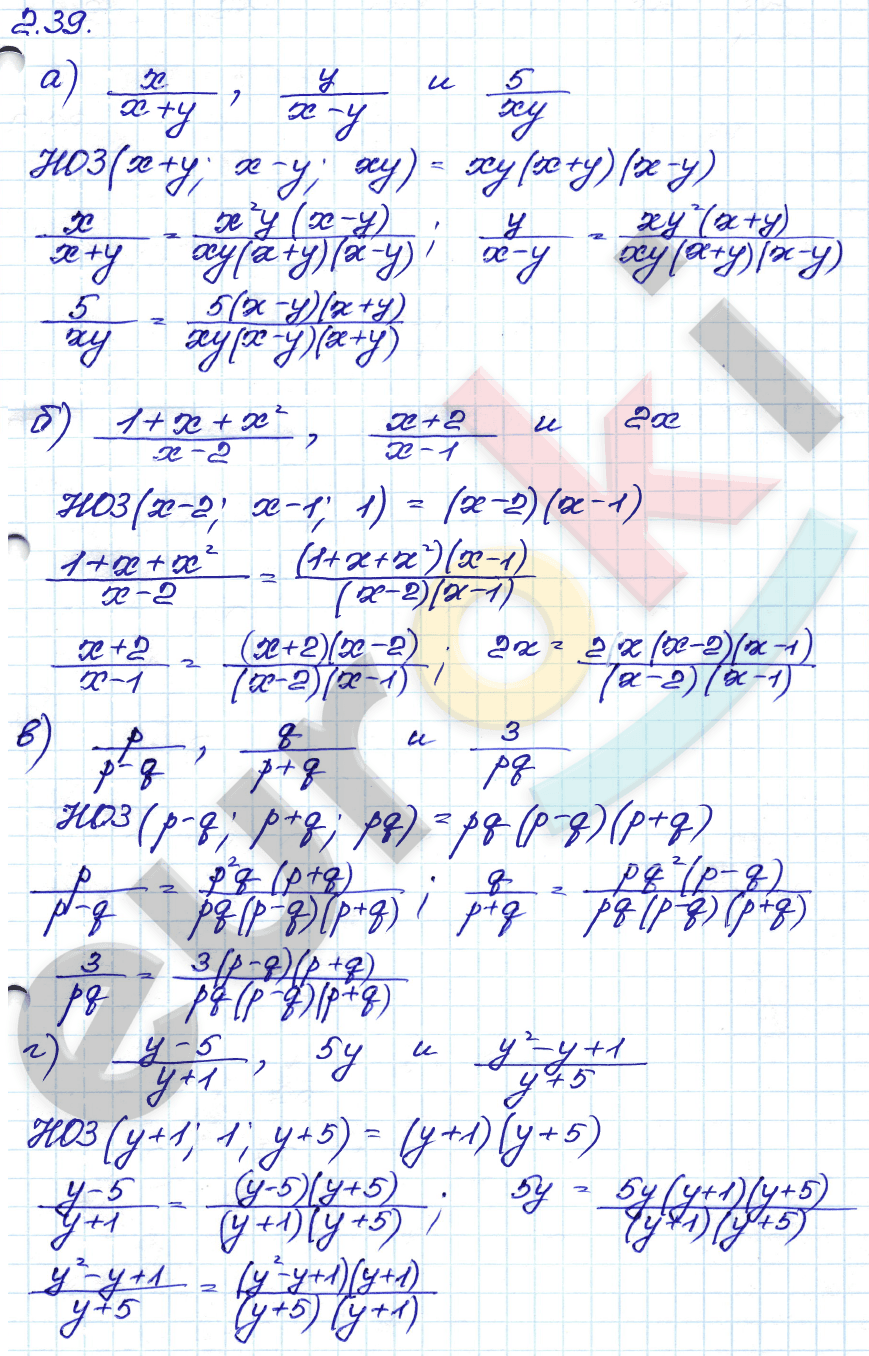 2.39.
а) x/(x+y), y/(x-y) и 5/(xy)
НОЗ(x+y; x-y; xy) = xy(x+y)(x-y)
x/(x+y) = x²y(x-y)/(xy(x+y)(x-y)); y/(x-y) = xy²(x+y)/(xy(x+y)(x-y))
5/(xy) = 5(x-y)(x+y)/(xy(x-y)(x+y))
б) (1+x+x²)/(x-2), (x+2)/(x-1) и 2x
НОЗ(x-2; x-1; 1) = (x-2)(x-1)
(1+x+x²)/(x-2) = (1+x+x²)(x-1)/((x-2)(x-1))
(x+2)/(x-1) = (x+2)(x-2)/((x-2)(x-1)); 2x = 2x(x-2)(x-1)/((x-2)(x-1))
в) p/(p-q), q/(p+q) и 3/(pq)
НОЗ(p-q; p+q; pq) = pq(p-q)(p+q)
p/(p-q) = p²q(p+q)/(pq(p-q)(p+q)); q/(p+q) = pq²(p-q)/(pq(p-q)(p+q))
3/(pq) = 3(p-q)(p+q)/(pq(p-q)(p+q))
г) (y-5)/(y+1), 5y и (y²-y+1)/(y+5)
НОЗ(y+1; 1; y+5) = (y+1)(y+5)
(y-5)/(y+1) = (y-5)(y+5)/((y+1)(y+5)); 5y = 5y(y+1)(y+5)/((y+1)(y+5))
(y²-y+1)/(y+5) = (y²-y+1)(y+1)/((y+5)(y+1))
euroki